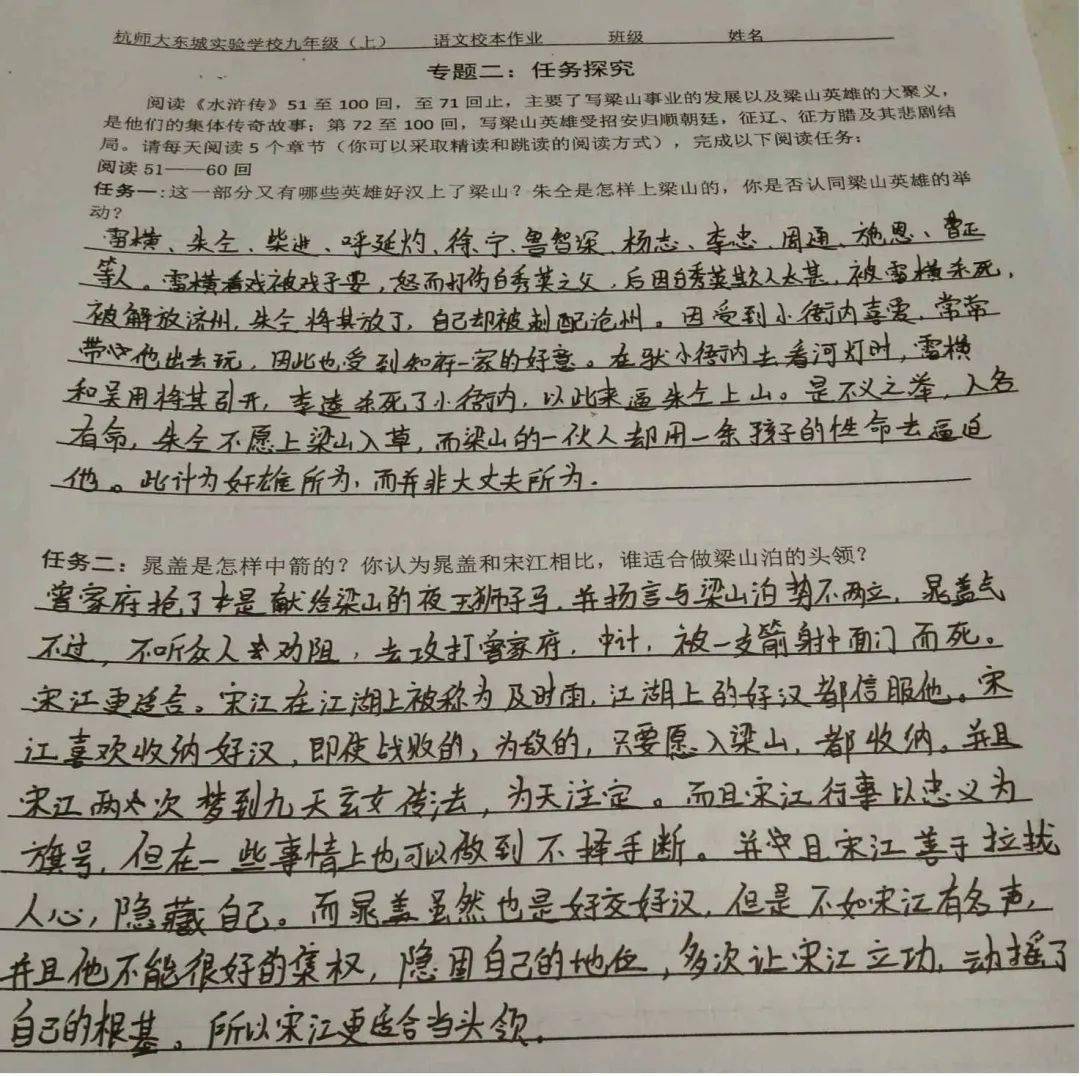 杭师大东城实验学校九年级（上） 语文校本作业 班级 姓名
专题二：任务探究
阅读《水浒传》51 至 100 回，至 71 回止，主要了写梁山事业的发展以及梁山英雄的大聚义，
是他们的集体传奇故事；第 72 至 100 回，写梁山英雄受招安归顺朝廷，征辽、征方腊及其悲剧结
局。请每天阅读 5 个章节（你可以采取精读和跳读的阅读方式），完成以下阅读任务：
阅读 51——60 回
任务一:这一部分又有哪些英雄好汉上了梁山？朱仝是怎样上梁山的，你是否认同梁山英雄的举
动？
雷横、朱仝、柴进、呼延灼、徐宁、鲁智深、杨志、李忠、周通、施恩、曹正
等人。雷横看戏被戏子耍，怒而打伤白秀英之父，后因白秀英欺人太甚，被雷横杀死，
被解放济州，朱仝将其放了，自己却被刺配沧州。因受到小衙内喜爱，常常
带他出去玩，因此也受到知府一家的好意。在小衙内去看河灯时，雷横
和吴用将其引开，李逵杀死了小衙内，以此来逼朱仝上山。是不义之举，人各
有命，朱仝不愿上梁山入草，而梁山的一伙人却用一条孩子的性命去逼迫
他。此计为奸雄所为，而并非大丈夫所为.
任务二：晁盖是怎样中箭的？你认为晁盖和宋江相比，谁适合做梁山泊的头领？
曾家府抢了本是献给梁山的夜玉狮子马，并扬言与梁山泊势不两立，晁盖气
不过，不听众人劝阻，去攻打曾家府，中计，被一支箭射中面门而死。
宋江更适合。宋江在江湖上被称为及时雨，江湖上的好汉都信服他。宋
江喜欢收纳好汉，即使战败的，为敌的，只要愿入梁山，都收纳。并且
宋江两次梦到九天玄女传法，为天注定。而且宋江行事以忠义为
旗号，但在一些事情上也可以做到不择手断。并且宋江善于拉拢
人心，隐藏自己。而晁盖虽然也是好交好汉，但是不如宋江有名声，
并且他不能很好的集权，隐固自己的地位，多次让宋江立功，动摇了
自己的根基。所以宋江更适合当头领.